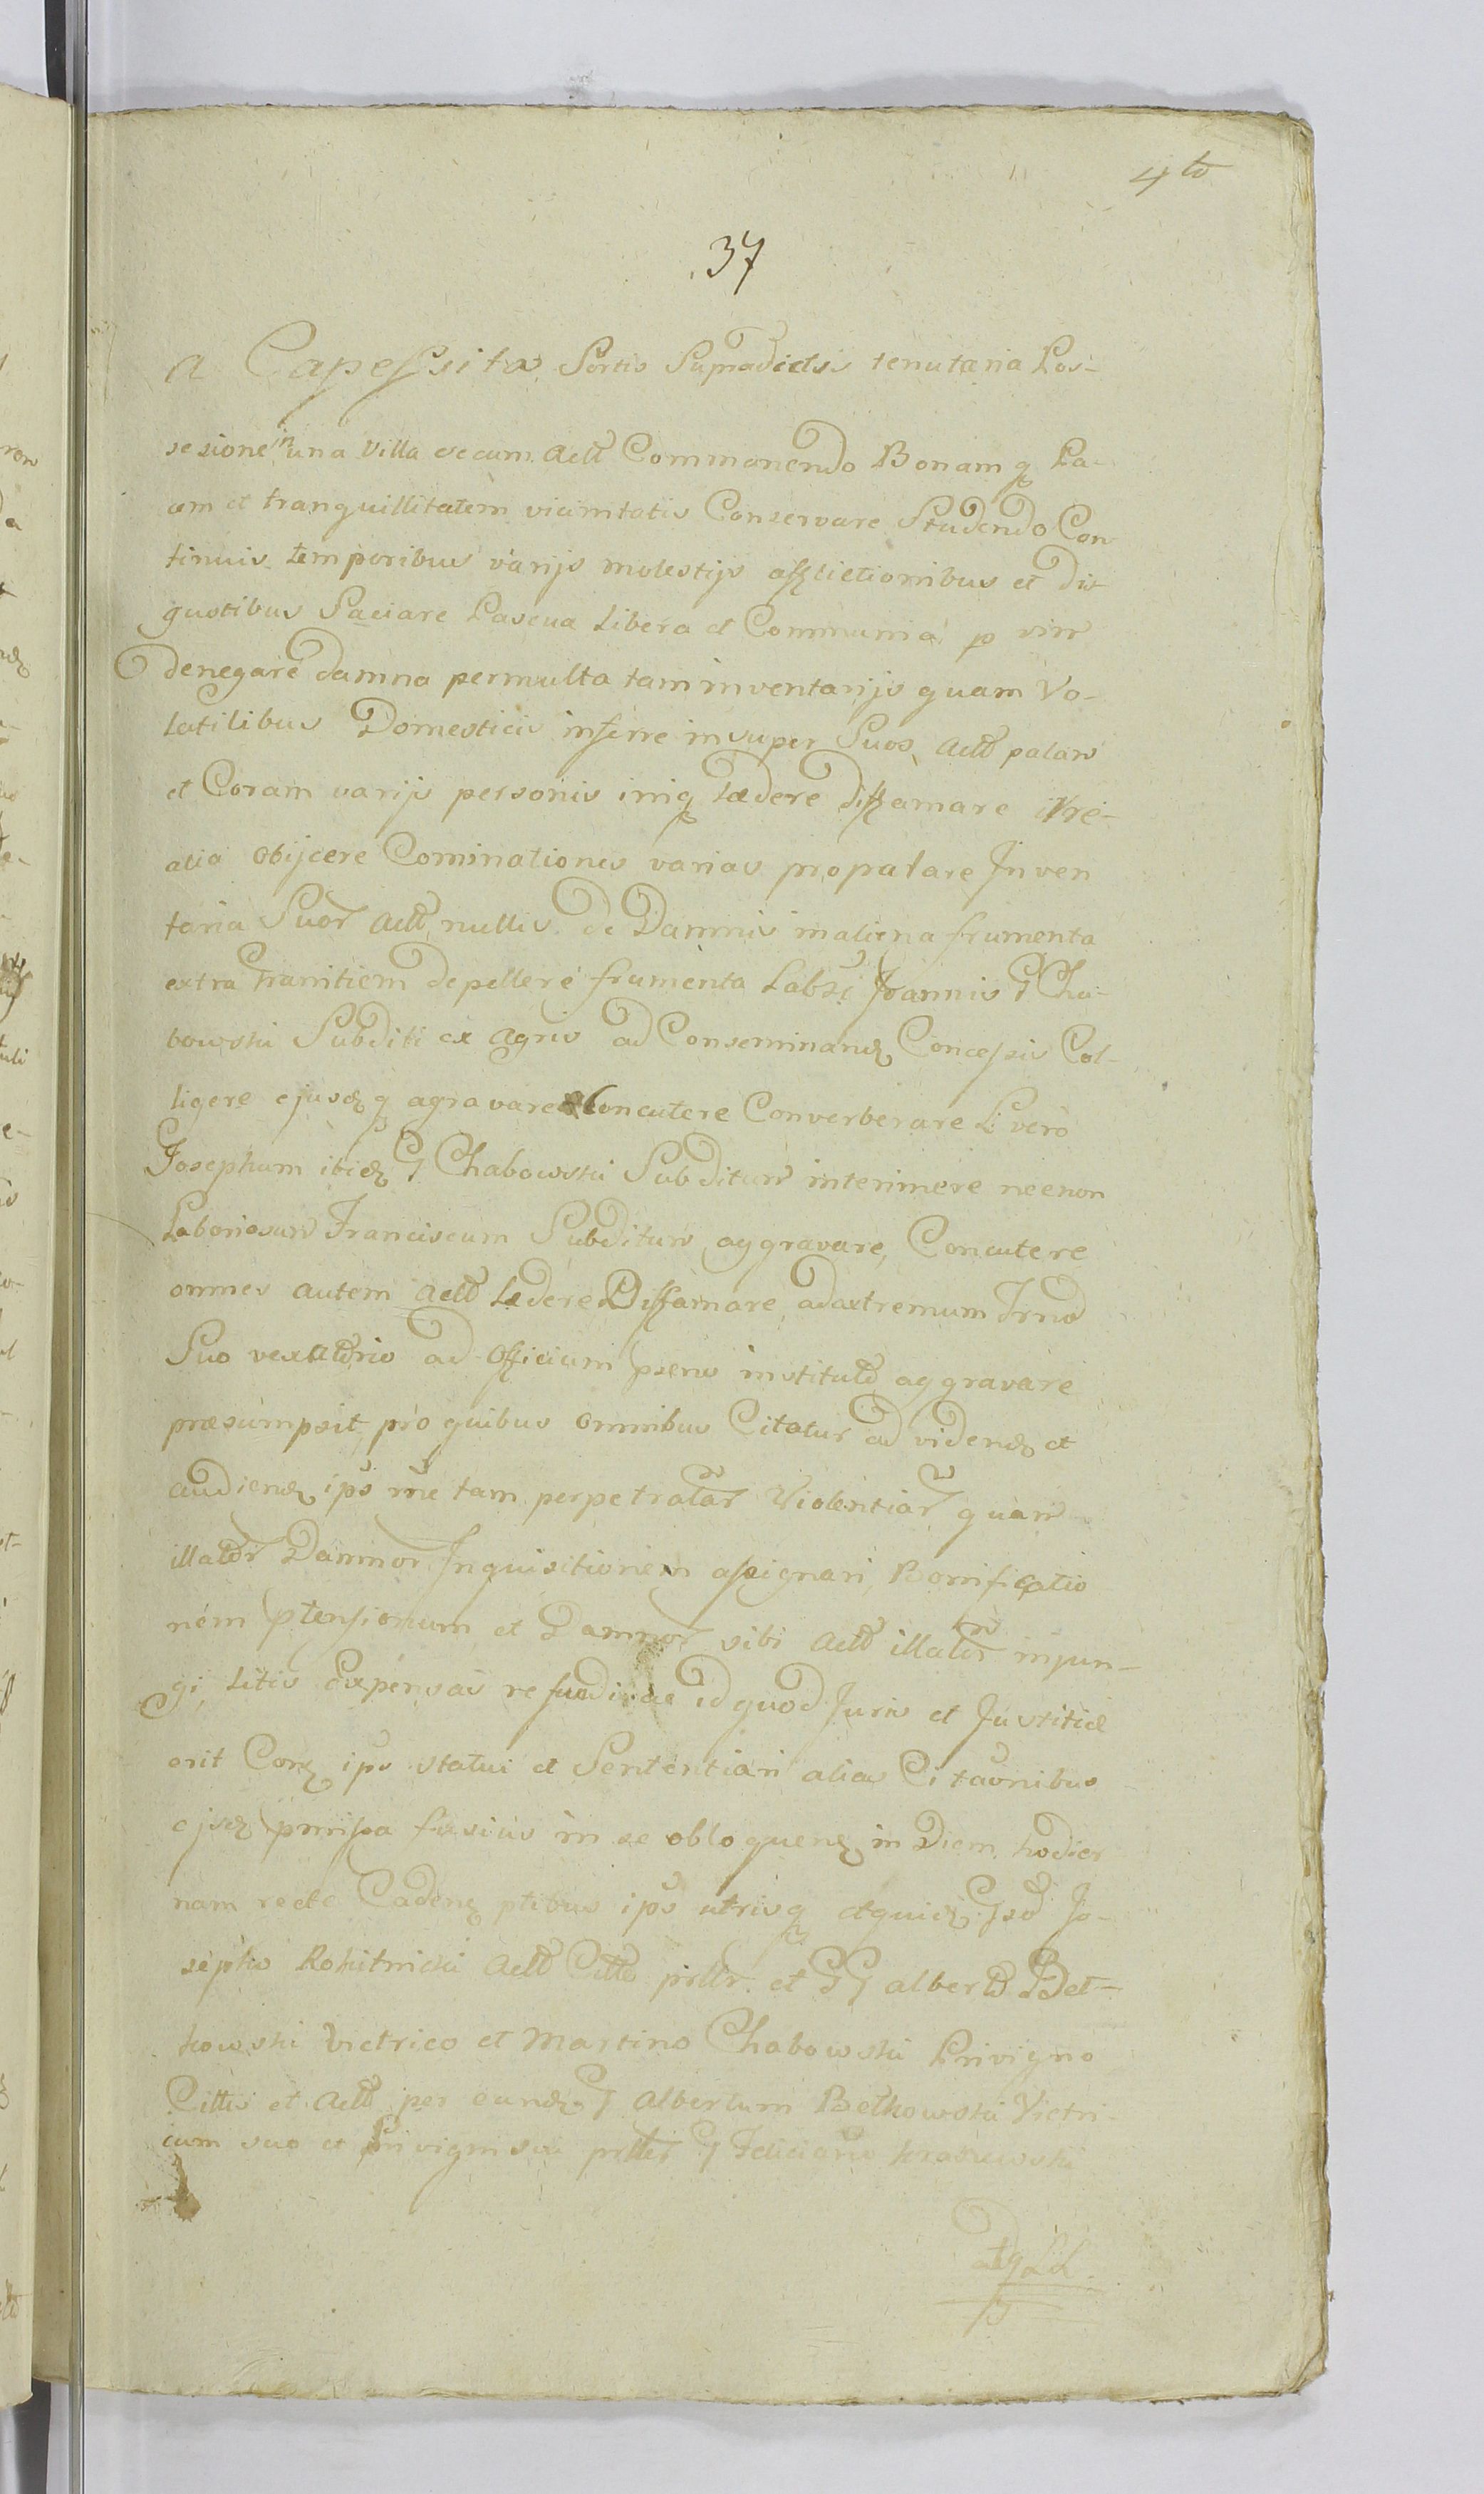 4to
37
a Capessita Sortis Supradictis tenutaria Pos-
sesione in una Villa secum Actt Commanendo Bonamq Pa-
cem et tranquillitatem vicinitatis Conservare Studendo Con
tinuis temporibus varijs molestijs afflictionibus et dis
gustibus Saciare Pascua Libera et Communia p vim
denegare damna permulta tam inventarijs quam Vo-
latilibus Domesticis inferre insuper Suos Actt palam
et Coram varijs personis iniq lædere diffamare irre-
alia obijcere Cominationes varias propalare Inven
taria Suor Actt nullis de Damnis in aliena frumenta
extra Granitiem depellere frumenta Labsi Joannis G Cha-
bowski Subditi ex agris ad Conseminand Concessis Col-
ligere ejusdq agravare Concutere Converberare L vero
Josephum ibid G Chabowski Subditum interimere necnon
Laboriosum Franciscum Subditum aggravare, Concutere
omnes autem Actt Ledere Diffamare adextremum Trnd
Suo vexatorio ad Officium psens institutd aggravare
præsumpsit pro quibus omnibus Citatur ad vidend et
audiend ips rne tam perpetratar Violentiar quam
illator Damnor Inquisitionem assignari, Bonificatio
nem ptensionum et Damnor sibi Actt illator injun-
gi, Litis Expensas refundi ac id quod Juris et Justitiæ
erit Cond ips Statui et Sententiari alias Citaonibus
ejsd pmissa fusius in se obloquend in Diem hodier
nam recte Cadend ptibus ips utrisq etquid Gsd Jo-
sepho Rokitnicki Actt Citto prllr. et GG alberto Bet-
kowski Victrico et Martino Chabowski Privigno
Cittis et Actt per eund G Albertum Betkowski Victri-
cum suo et Privigni sui prller G Feliciano Kraszewski